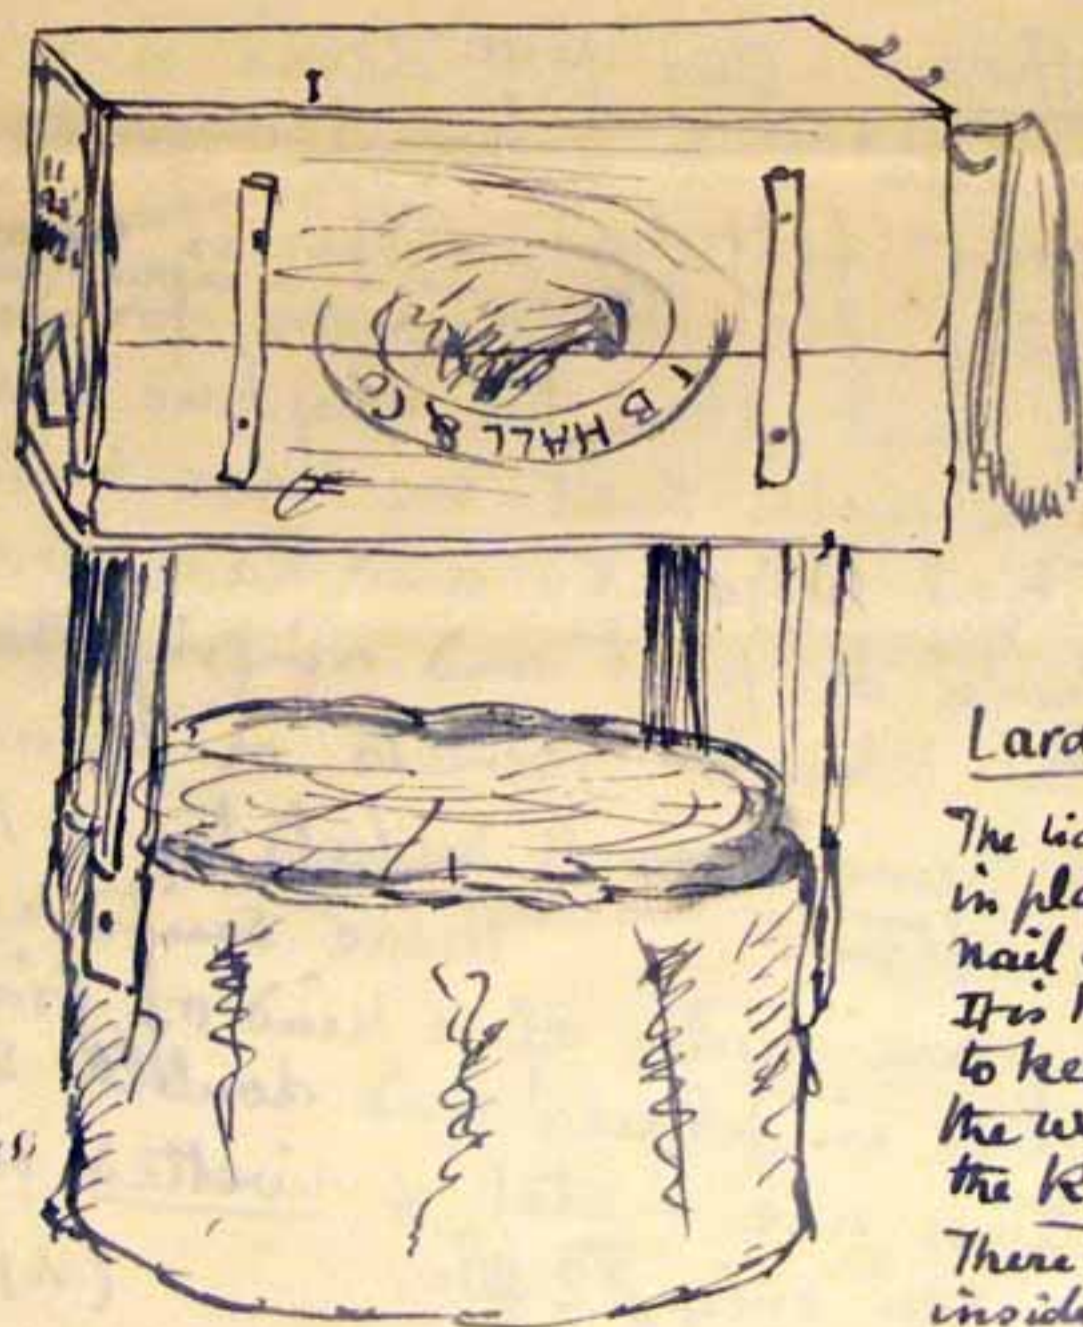 T B HALL & CO
Lard
The lid
in pla
nail
It is h
to ke
the w
the k
There
inside